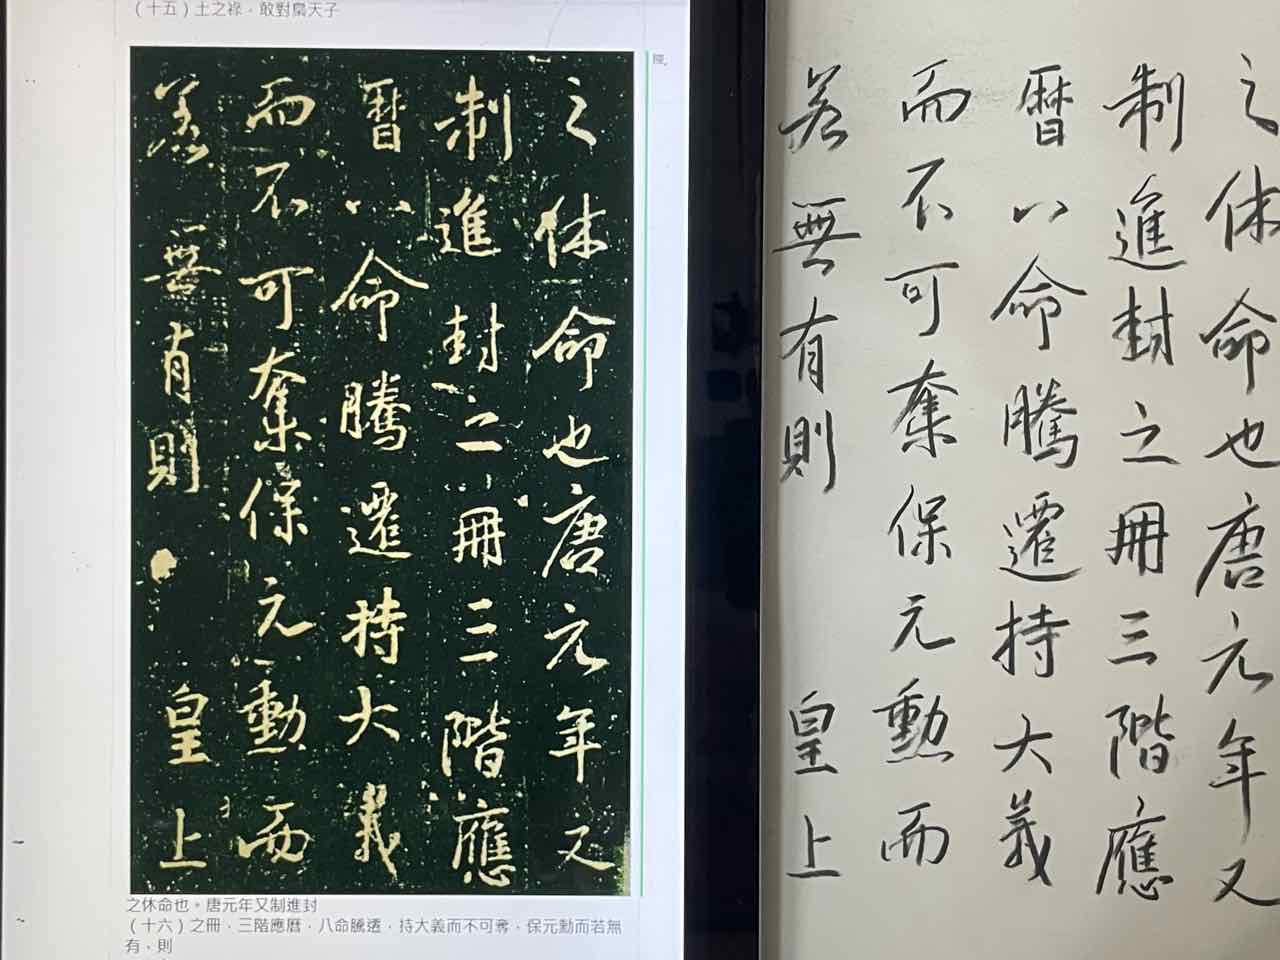 （十五）土之祿．敢對梟天子
之休命也唐元年又
制進封之冊三階應
曆八命騰遷持大義
而不可奪保元勳而
若無有則　皇上
之休命也。唐元年又制進封
（十六）之冊．三階應曆．八命騰透．持大義而不可奪．保元勳而若無
有、則
之休命也唐元年又
制進封之冊三階應
曆八命騰遷持大義
而不可奪保元勳而
若無有則　皇上